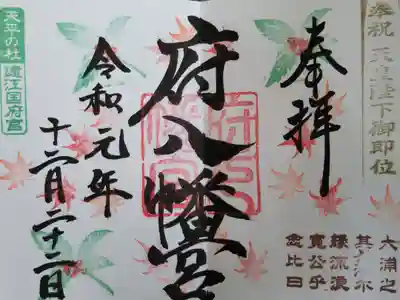 奉祝 天皇陛下御即位
奉拝
大浦之
其長濱尓
縁流浪
寛公乎
念比日
府八幡宮
府八幡宮
令和元年
十二月二十二日
天平の杜
遠江国府宮